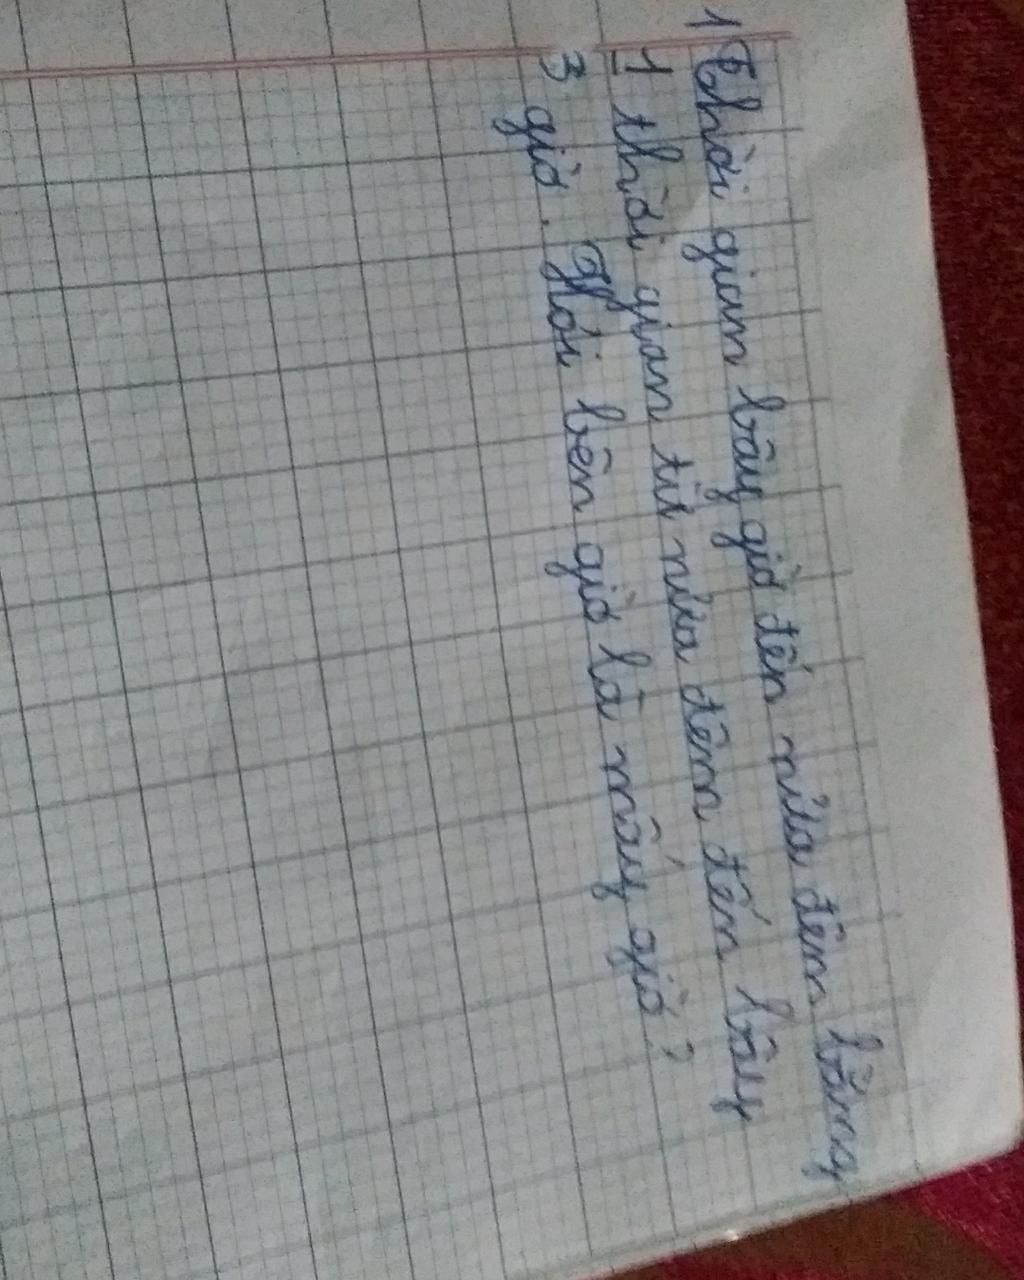 1 Thời gian bây giờ đến nửa đêm bằng
1/3 thời gian từ nửa đêm đến bây
giờ. Hỏi bên giờ là mấy giờ?